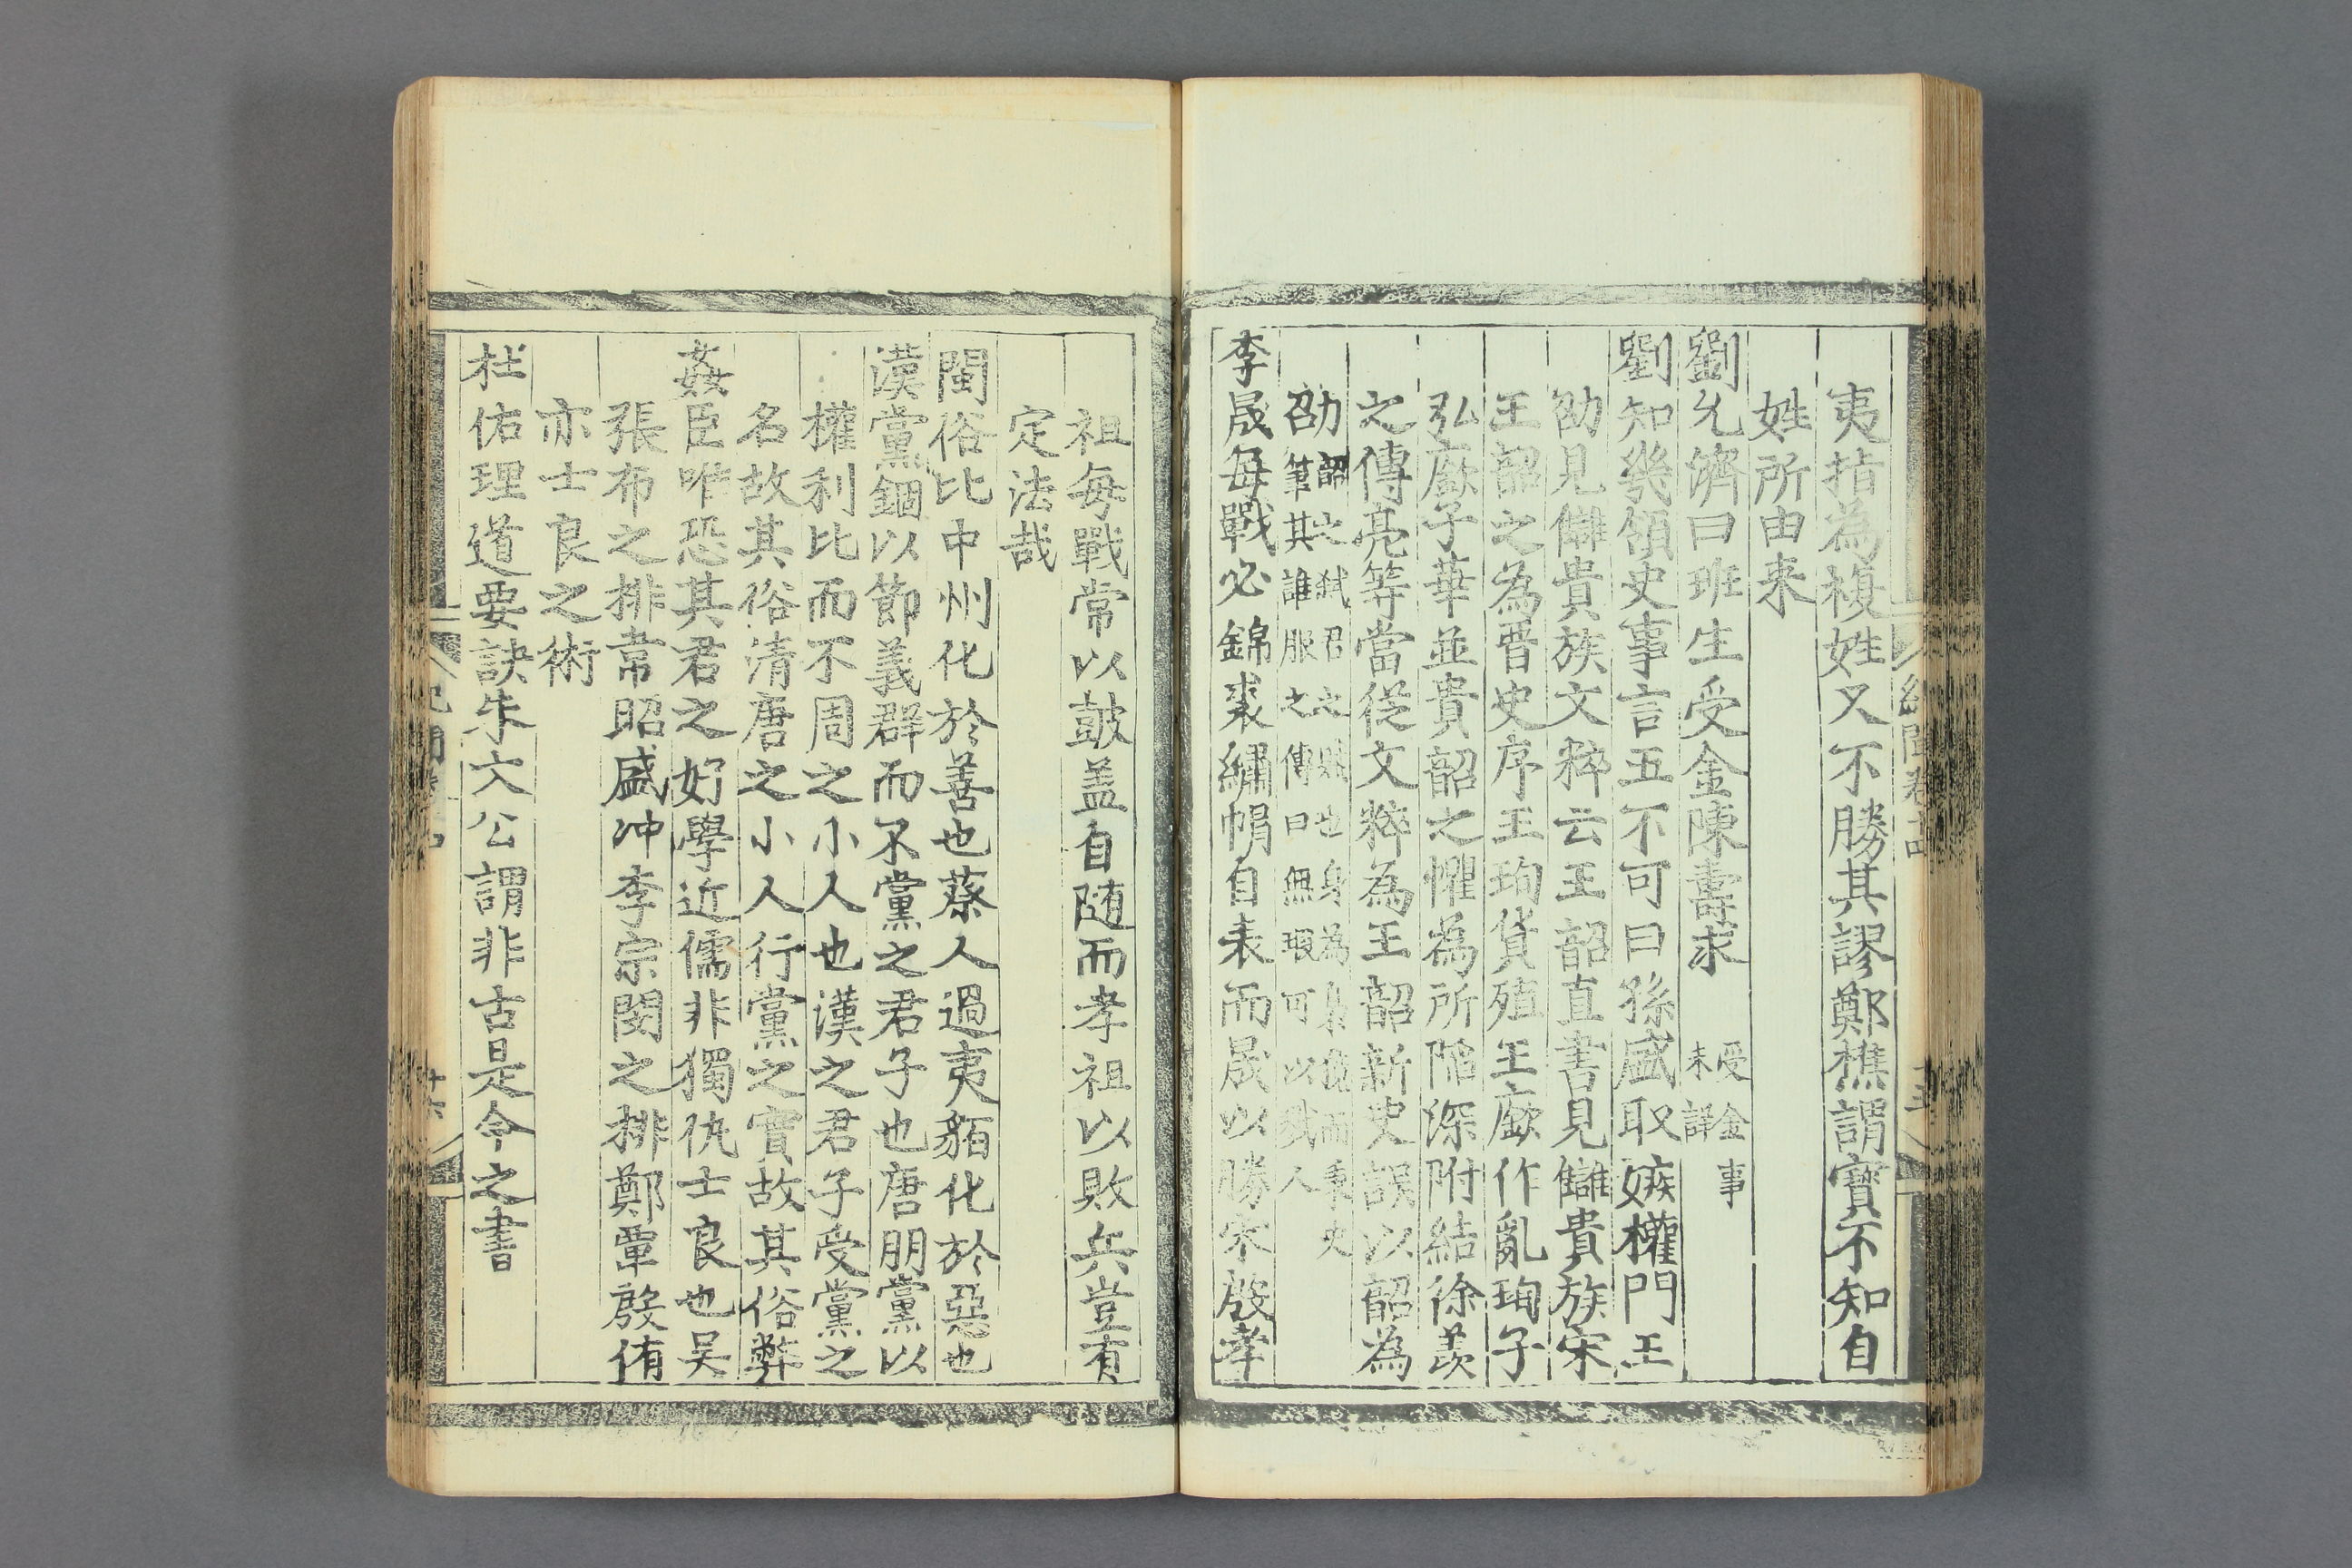 夷指為複姓又不勝其謬鄭樵謂寳不知自
姓所由来
劉允濟曰班生受金陳壽求 受金事未詳
劉知幾領史事言五不可曰孫盛取嫉權門王
劭見讎貴族文粹云王韶直書見讎貴族宋
王韶之為晋史序王珣貨殖王廞作亂珣子
弘廞子華並貴韶之懼為所陷深附結徐羨
之傅亮等當從文粹為王韶新史誤以韶為
劭 韶之弑君之賊也身為
筆其誰服之傳曰無瑕可以戮人
李晟每戰必錦裘繡帽自表而晟以勝宋殷孝
祖每戰常以鼓盖自随而孝祖以敗兵豈有
定法哉
閩俗比中州化於善也蔡人過夷貊化於惡也
漢黨錮以節義群而不黨之君子也唐朋黨以
權利比而不周之小人也漢之君子受黨之
名故其俗清唐之小人行黨之實故其俗弊
姦臣唯恐其君之好學近儒非獨仇士良也吴
張布之排韋昭盛冲李宗閔之排鄭覃殷侑
亦士良之術
杜佑理道要訣朱文公謂非古是今之書